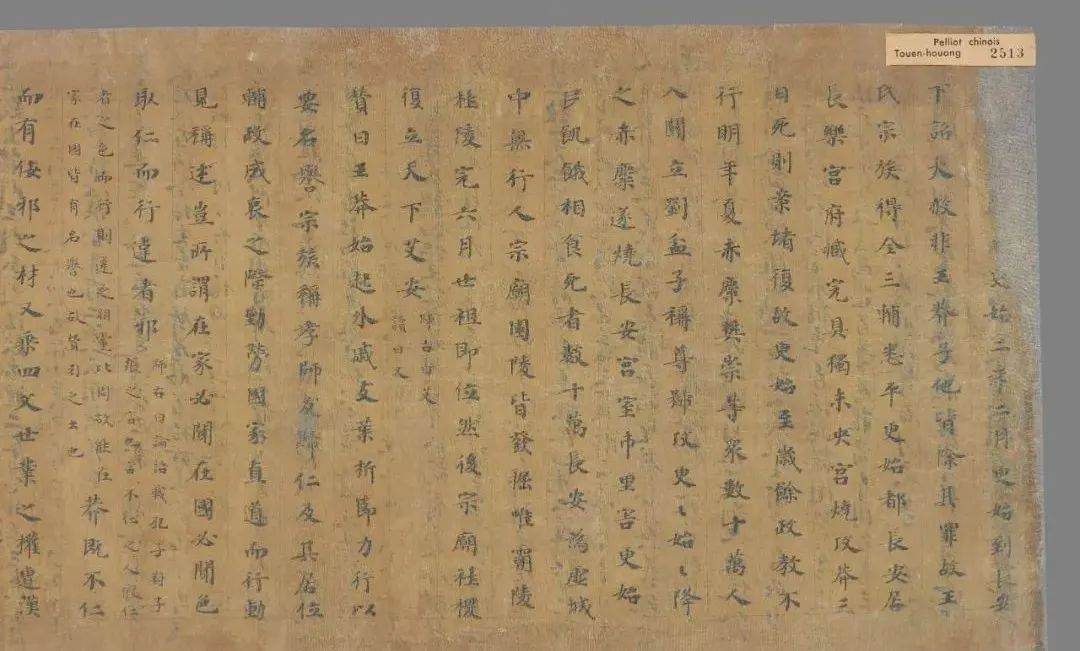 Pelliot chinois
Touen-houang 2513
始二年二月更始到長安
下詔大赦非王莽子他皆除其罪故王
氏宗族得全三輔悉平更始都長安居
長樂宮府藏完具獨未央宮燒攻莽三
日死則案堵復故更始至歲餘政教不
行明年夏赤糜樊崇等眾數十萬人
入關立劉盆子稱尊號攻更〻始〻降
之赤糜遂燒長安宮室市里害更始
民飢餓相食死者數十萬長安為虛城
中無行人宗廟園陵皆發掘唯霸陵
杜陵完六月世祖即位然後宗廟社稷
復立天下艾安
師古曰艾
讀曰乂
贊曰王莽始起外戚支葉折節力行以
要名譽宗族稱孝師友歸仁及其居位
輔政成哀之際勤勞國家直道而行動
見稱述豈所謂在家必聞在國必聞色
取仁而行違者邪
師古曰論語載孔子對子
張之言也言不仁之人假仁
者之色而行則違之朋黨比周故能在
家在國皆有名譽也故贊引之
莽既不仁
而有佞邪之材又乘四父世業之權遭漢